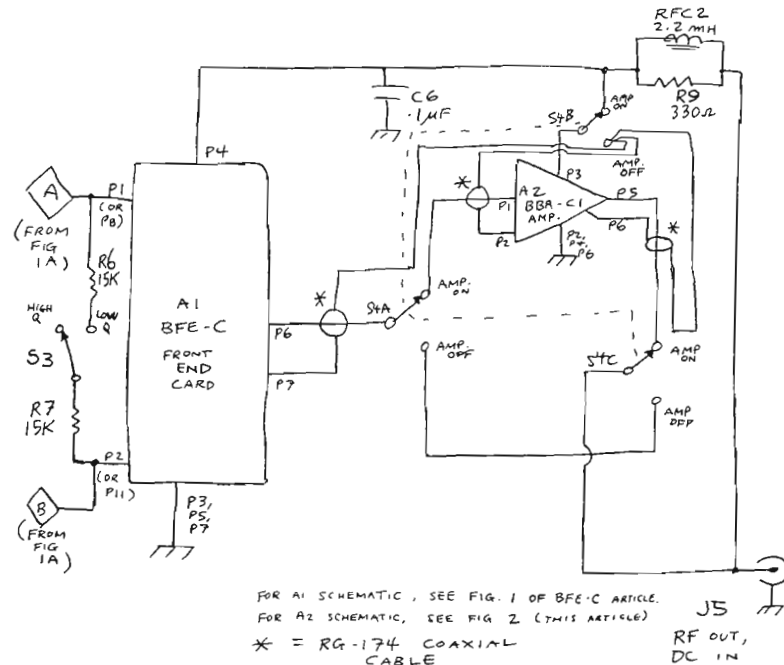 RFC2
2.2 MH
R9
330Ω
C6
.1μF
S4B
AMP
ON
AMP.
OFF
P4
A
(FROM
FIG
1A)
P1
(OR
P8)
R6
15K
HIGH
Q
LOW
Q
S3
R7
15K
P2
(OR
P11)
B
(FROM
FIG
1A)
A1
BFE-C
FRONT
END
CARD
P6
P7
P3,
P5,
P7
*
S4A
AMP.
ON
AMP.
OFF
*
P1
P2
A2
BBA-C1
AMP.
P3
P2,
P4,
P6
P5
P6
*
S4C
AMP
ON
AMP
OFF
FOR A1 SCHEMATIC, SEE FIG. 1 OF BFE-C ARTICLE.
FOR A2 SCHEMATIC, SEE FIG 2 (THIS ARTICLE)
* = RG-174 COAXIAL
CABLE
J5
RF OUT,
DC IN